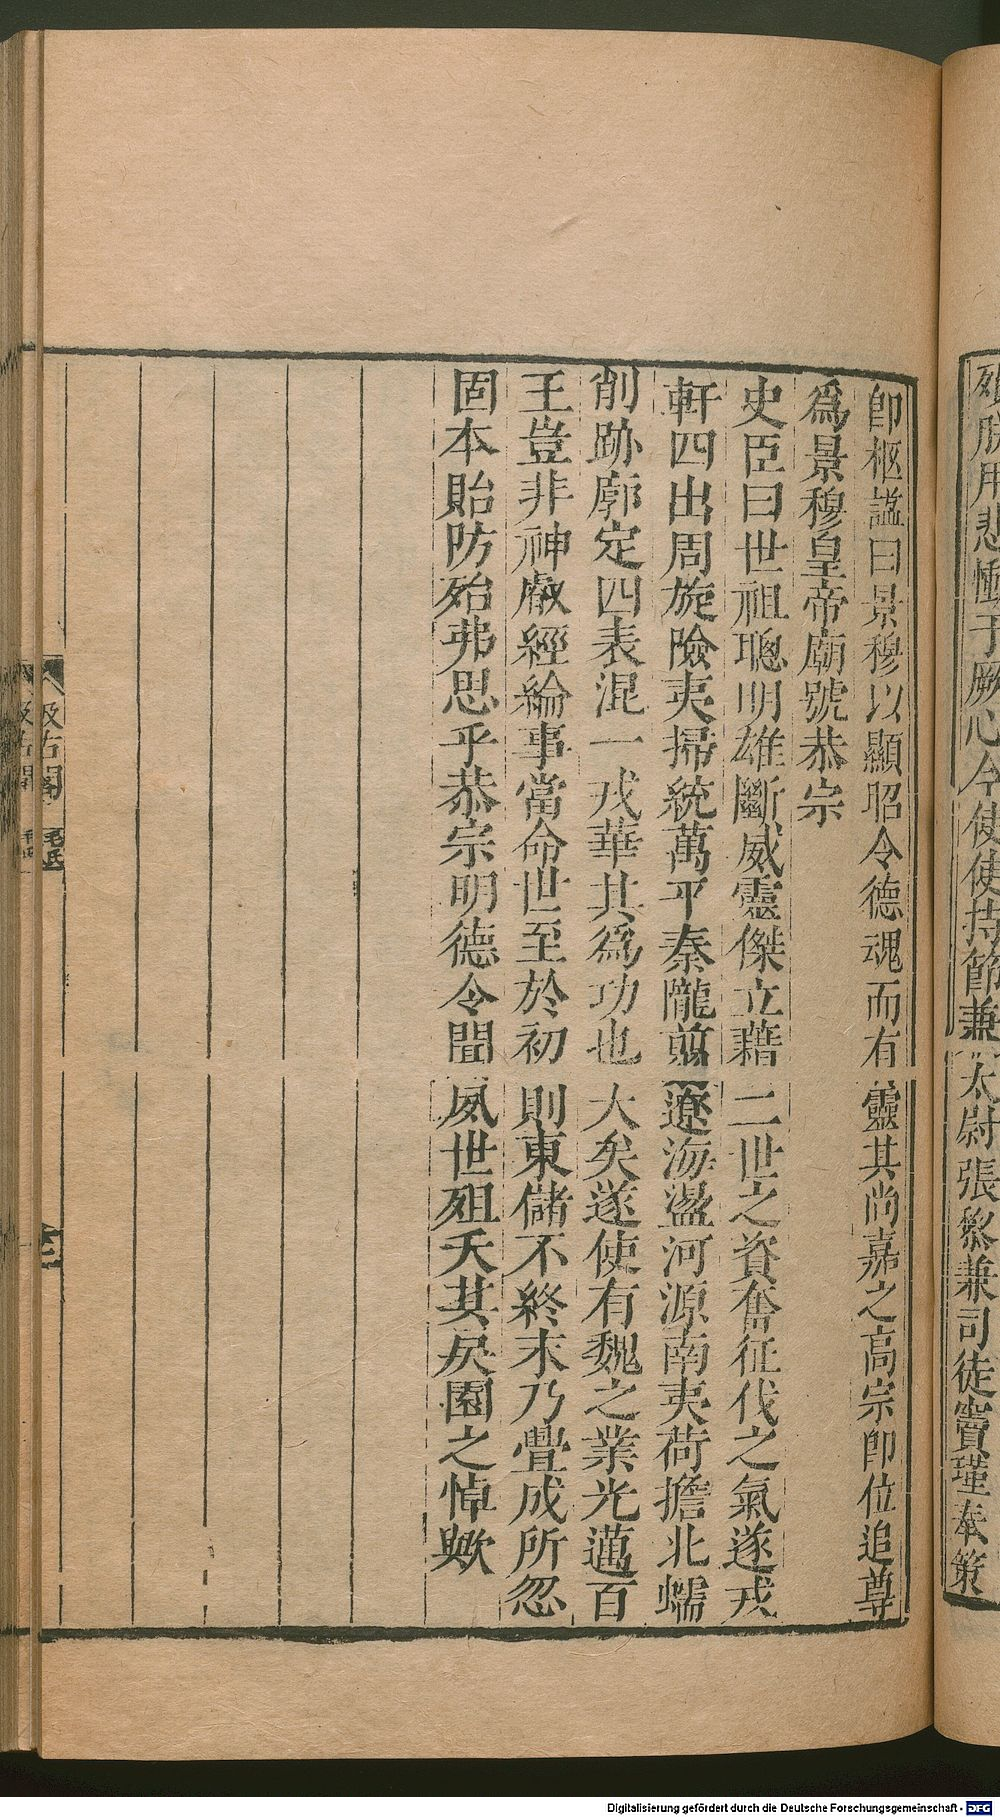 殯朕用悲慟于厥心今使使持節兼太尉張黎兼司徒竇瑾奉策
卽柩諡曰景穆以顯昭令德魂而有靈其尚嘉之高宗卽位追尊
爲景穆皇帝廟號恭宗
史臣曰世祖聰明雄斷威靈傑立藉二世之資奮征伐之氣遂戎
軒四出周旋險夷掃統萬平秦隴翦遼海盪河源南夷荷擔北蠕
削跡廓定四表混一戎華其爲功也大矣遂使有魏之業光邁百
王豈非神叡經綸事當命世至於初則東儲不終末乃釁成所忽
固本貽防殆弗思乎恭宗明德令聞夙世殂夭其戾園之悼歟
汲古閣
毛氏
Digitalisierung gefördert durch die Deutsche Forschungsgemeinschaft - DFG